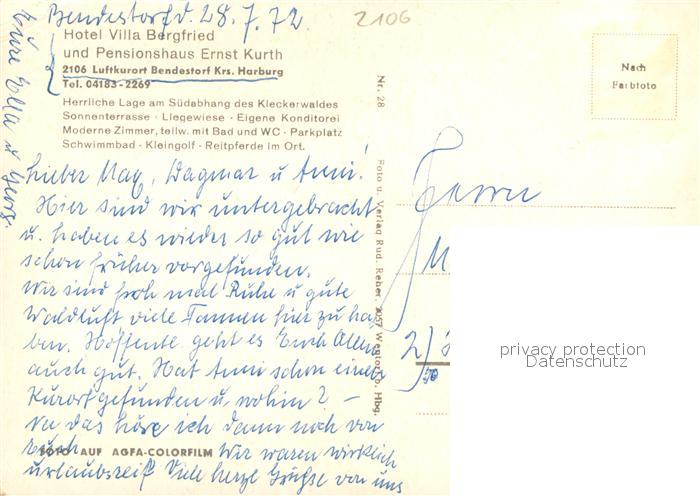 Bendestorf d. 28.7.72.
2106
Hotel Villa Bergfried
und Pensionshaus Ernst Kurth
2106 Luftkurort Bendestorf Krs. Harburg
Tel. 04183-2269
Herrliche Lage am Südabhang des Kleckerwaldes
Sonnenterrasse · Liegewiese · Eigene Konditorei
Moderne Zimmer, teilw. mit Bad und WC · Parkplatz
Schwimmbad · Kleingolf · Reitpferde im Ort.
Lieber Max, Dagmar u Anni!
Hier sind wir untergebracht
u. haben es wieder so gut wie
schon früher vorgefunden.
Wir sind froh mal Ruhe u gute
Waldluft viele Tannen hier zu ha-
ben. Hoffente geht es Euch Allen
auch gut. Hat Anni schon einen
Kurort gefunden u. wohin? –
Na das höre ich dann noch von
Euch
FOTO AUF AGFA-COLORFILM
Wir waren wirklich
urlaubsreif Viele herzl Grüße von uns
Eure Ella u Georg.
Nr. 28
Foto u. Verlag Rud. Reher, 2057 Wentorf b. Hbg.
Nach
Farbfoto
Herrn
M
2)
privacy protection
Datenschutz